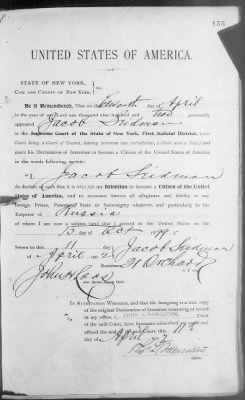 153
UNITED STATES OF AMERICA.
STATE OF NEW YORK,
CITY AND COUNTY OF NEW YORK, } ss.:
Be it Remembered, That on the Eleventh day of April
in the year of our Lord one thousand nine hundred and two personally
appeared Jacob Seidman
in the Supreme Court of the State of New York, First Judicial District, (said
Court being a Court of Record, having common law jurisdiction, a Clerk and a Seal,) and
made his Declaration of Intention to become a Citizen of the United States of America
in the words following, to wit:
"I, Jacob Seidman
do declare on oath that it is bona fide my Intention to become a Citizen of the United
States of America, and to renounce forever all allegiance and fidelity to any
foreign Prince, Potentate, State or Sovereignty whatever, and particularly to the
Emperor of Russia
of whom I am now a subject and that I arrived in the United States on the
15 day of Oct
Sworn to this 11
day of April 190 2 Jacob Seidman
21 Orchard
John H.
IN ATTESTATION WHEREOF, and that the foregoing is a true copy
of the original Declaration of Intention remaining of record
in my office, I, THOS. L. HAMILTON, Clerk
of the said Court, have hereunto subscribed my name and
affixed the seal of the said Court, this 11th
day of April 2
Thos. L. Hamilton
Clerk.